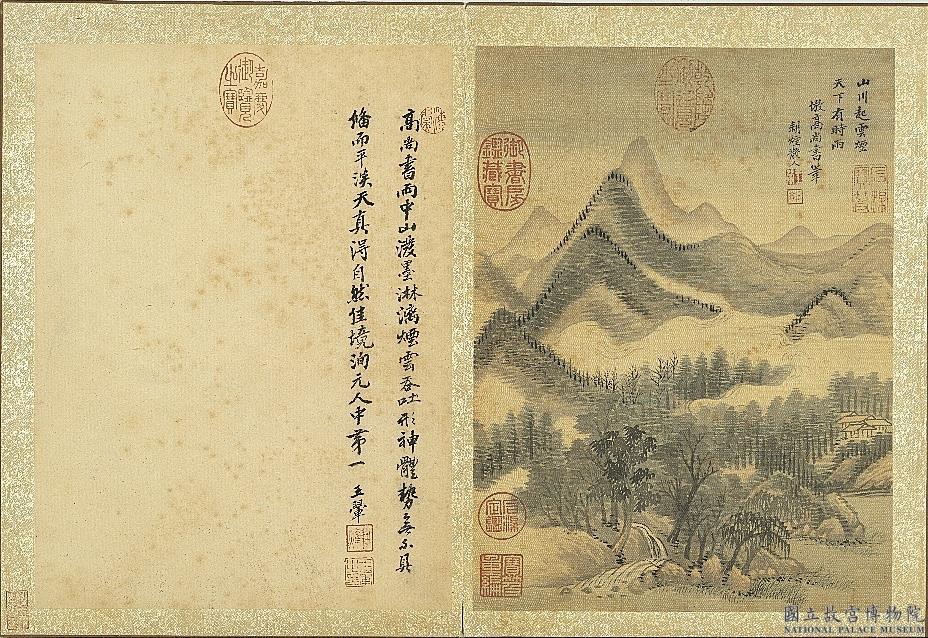 山川起雲煙
天下有時雨
倣高尚書筆
高尚書雨中山潑墨淋漓煙雲吞吐形神體勢無不具
備而平淡天真得自然佳境洵元人中第一 王翬
嘉慶御覽之寶
御書房鑑藏寶
國立故宮博物院
NATIONAL PALACE MUSEUM